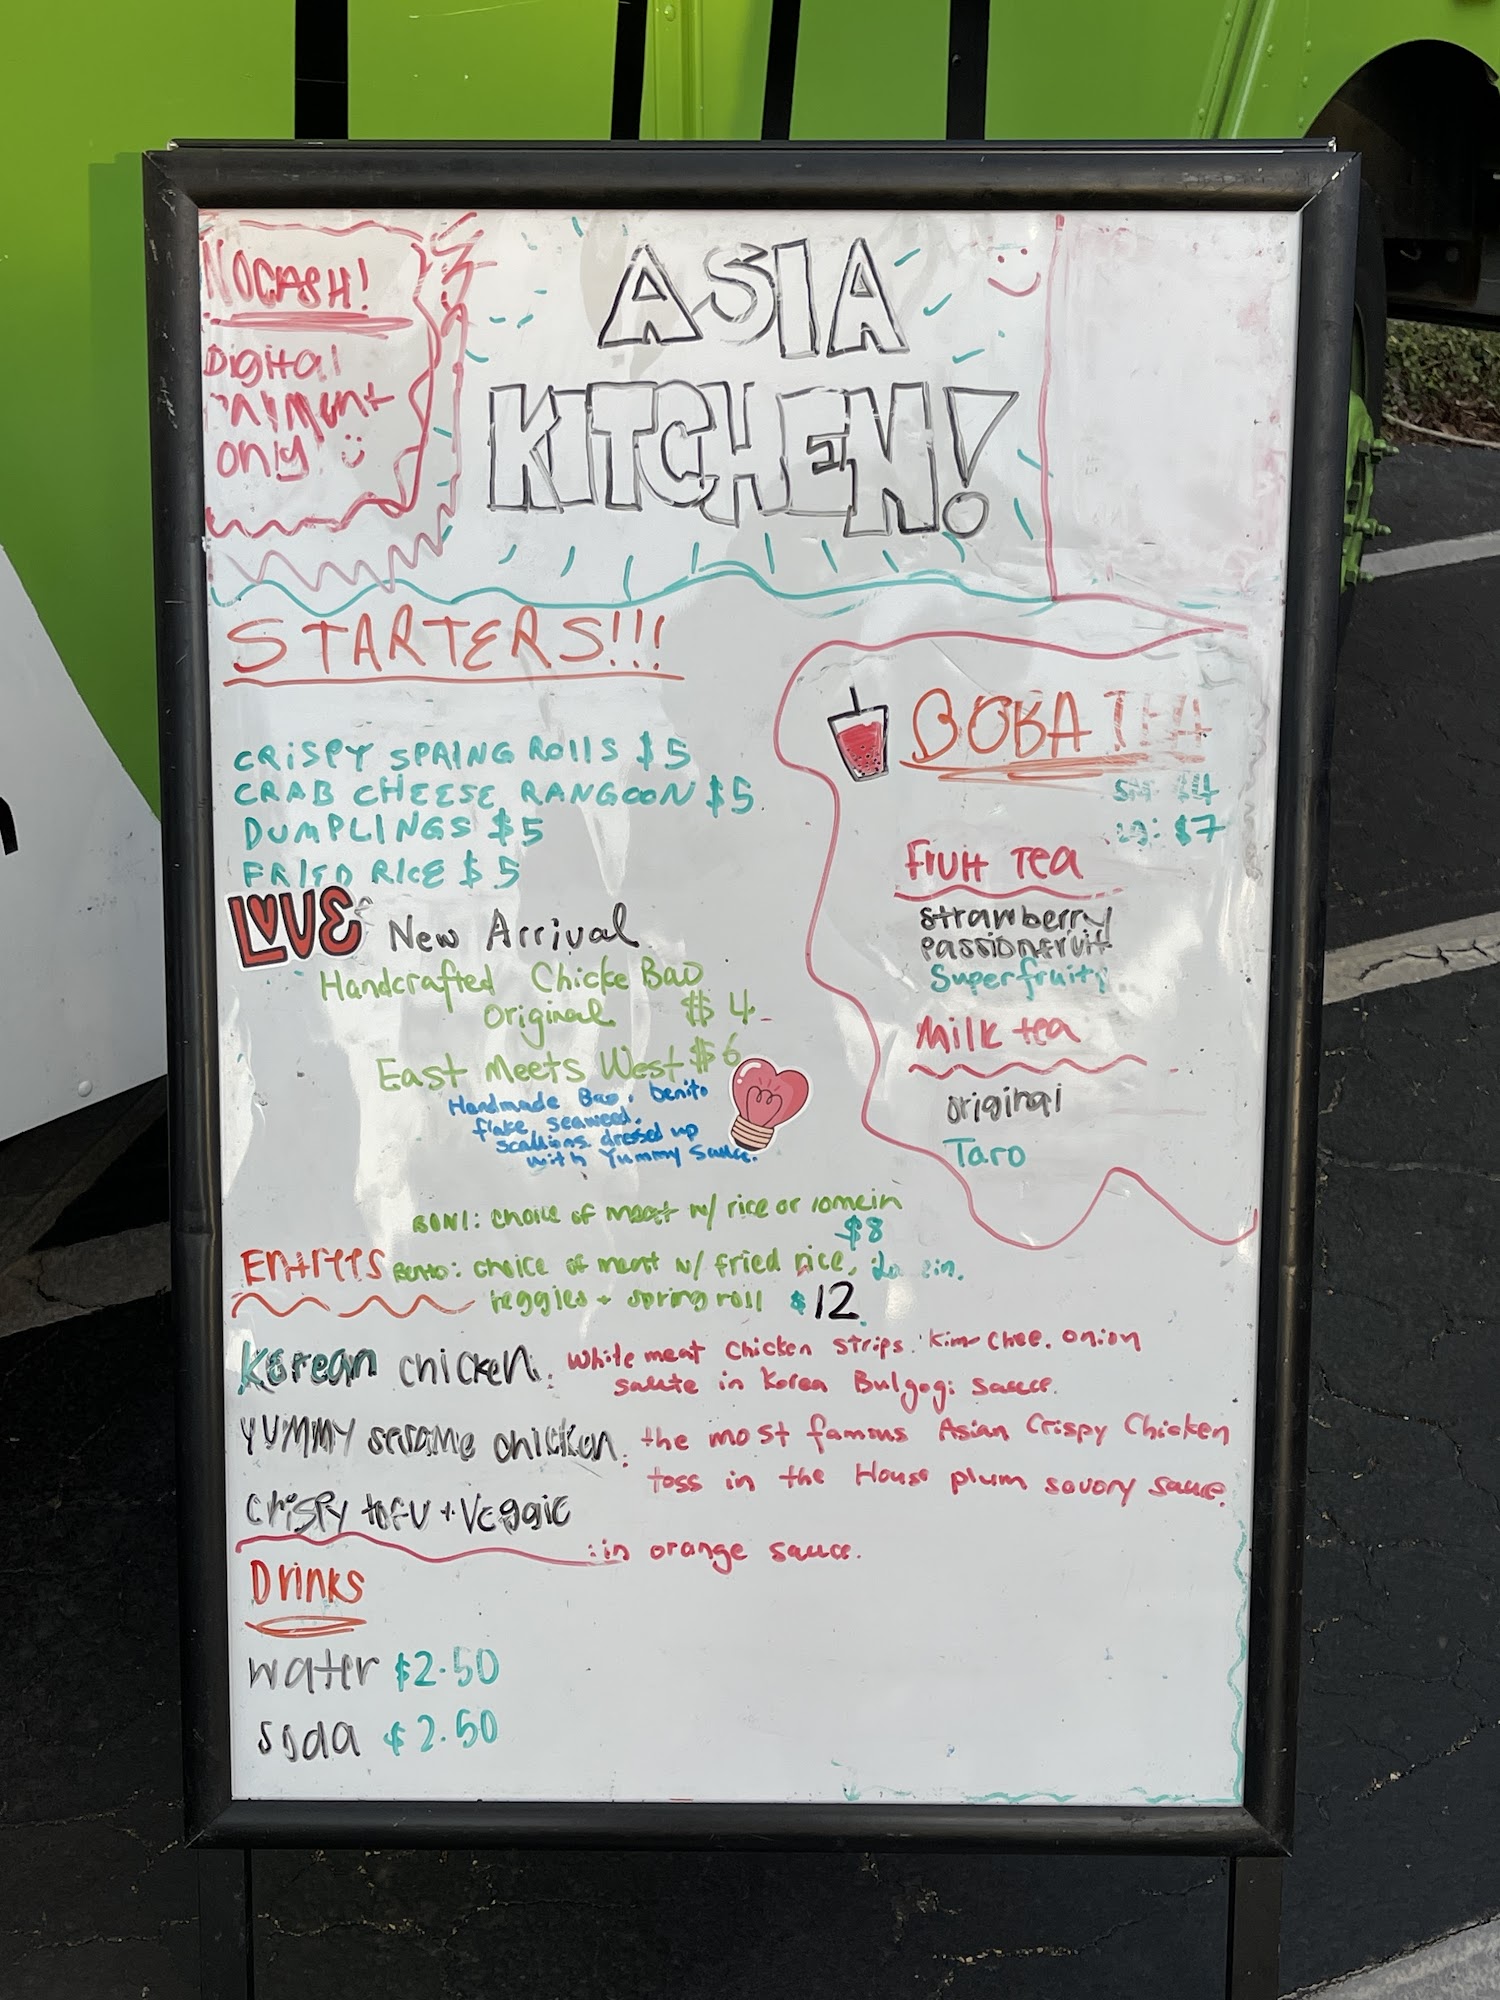 NO CASH!
Digital
Payment
only
ASIA
KITCHEN!
STARTERS!!!
CRiSPY SPRING ROllS $5
CRAB CHEESE RANGOON $5
DUMPLINGS $5
FRIED RICE $5
LOVE
New Arrival
Handcrafted Chicke Bao
Original $4
East Meets West $6
Handmade Bao, benito
flake, seaweed,
scallions dressed up
with Yummy Sauce.
BOBA TEA
SM: $4
Lg: $7
Fruit Tea
Strawberry
Passionfruit
Superfruit
Milk tea
original
Taro
BOWl: choice of meat w/ rice or lomein
$8
Entrees
Bento: choice of meat w/ fried rice, Lo mein.
veggies + spring roll $12
Korean chicken: White meat Chicken strips. Kim-Chee. Onion
saute in Korea Bulgogi sauce.
YUMMY sesame chicken: the most famous Asian Crispy Chicken
toss in the House plum savory sauce.
Crispy tofu + Veggie
: in orange sauce.
Drinks
water $2.50
soda $2.50